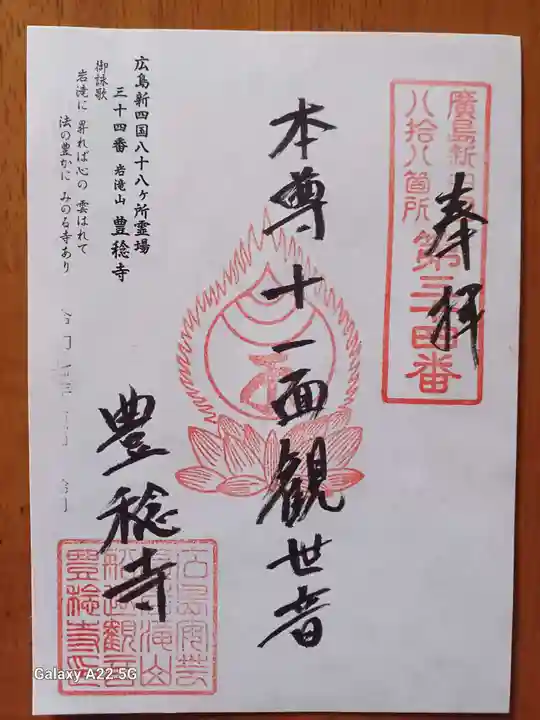 廣島新四国
八拾八箇所 第三十四番
奉拝
本尊十一面観世音
豊稔寺
広島新四国八十八ヶ所霊場
三十四番 岩滝山 豊稔寺
御詠歌
岩滝に 昇れば心の 雲はれて
法の豊かに みのる寺あり
豊稔寺印
Galaxy A22 5G